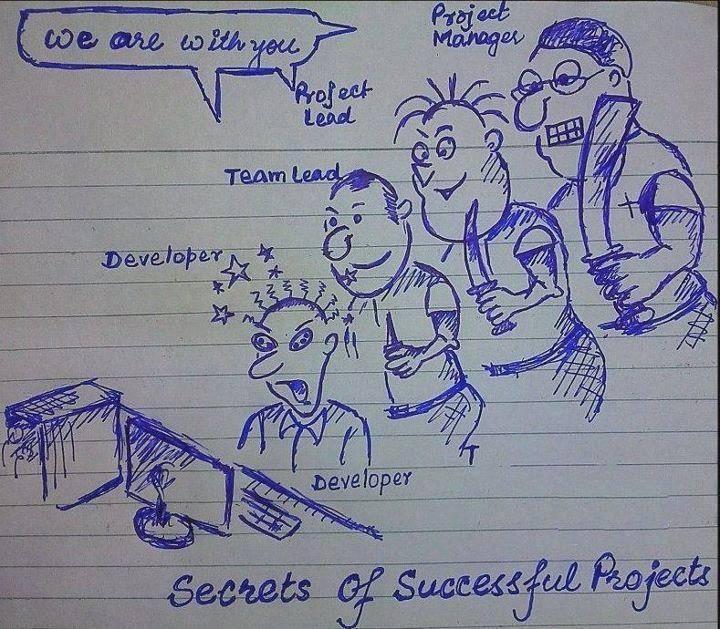 we are with you
Project
Manager
Project
Lead
Team Lead
Developer
Developer
Secrets Of Successful Projects